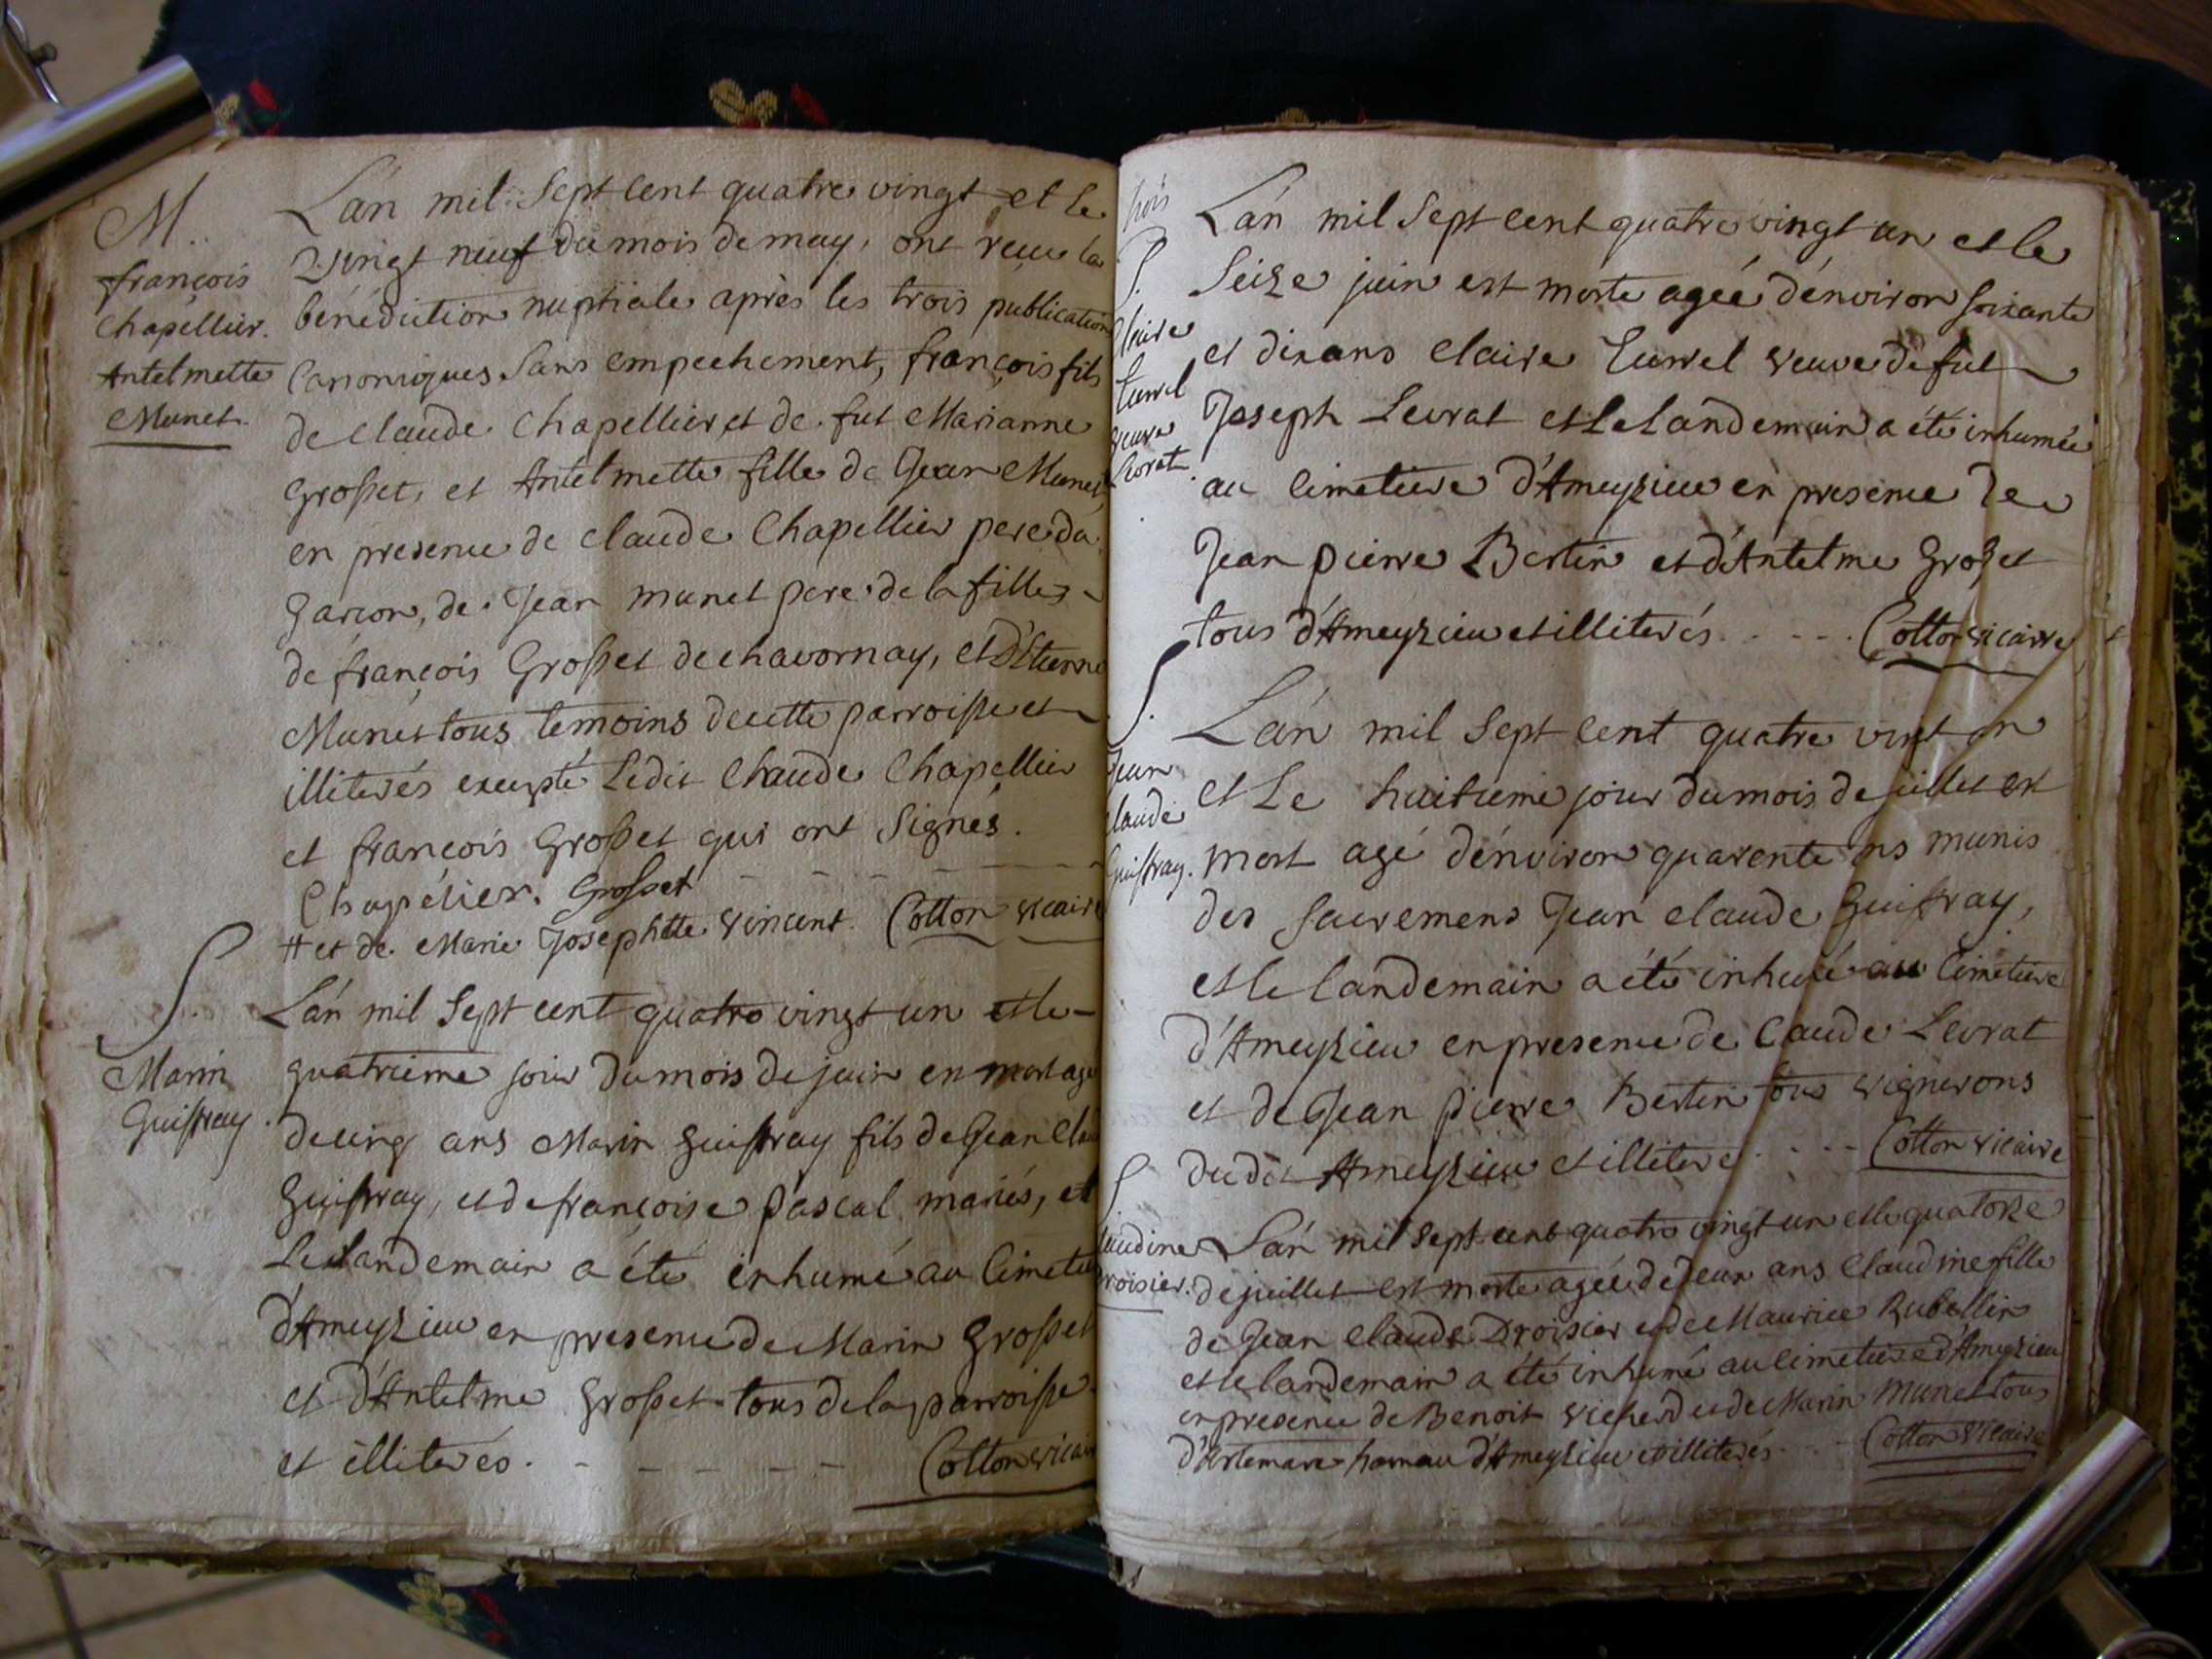 M.
françois
Chapellier.
Antelmette
Munet.
L'an mil Sept cent quatre vingt et le
Vingt neuf du mois de may, ont recue la
bénédiction nuptiale après les trois publications
Canoniques Sans empechement, françois fils
de Claude Chapellier et de fut Marianne
Grosset, et Antelmette fille de Jean Munet #
en presence de Claude Chapellier pere du
Garcon, de Jean munet pere de la fille,
de françois Grosset de chavornay, et d'Etienne
Munet tous temoins de cette parroisse et
illiterés excepté Ledit Claude Chapellier
et françois Grosset qui ont Signés.
Chapélier. Grosset
# et de Marie Josephtte Vincent. Cotton vicaire
S.
Marin
Guiffray.
L'an mil Sept cent quatre vingt un et le
quatrieme jour du mois de juin en mort agé
de cinq ans Marin Guiffray fils de Jean Claude
Guiffray, et de françoise pascal mariés, et
Le landemain a été inhumé au Cimetiere
d'Ameyzieu en presence de Marin Grosset
et d'Antelme Grosset tous de la parroisse
et illiterés. - - - - - Cotton vicaire
S.
Claire
Turrel
veuve
Levrat.
L'an mil Sept cent quatre vingt un et le
Seize juin est morte agée d'environ soixante
et dix ans Claire Turrel veuve de fut
Joseph Levrat et Le Landemain a été inhumée
au Cimetiere d'Ameyzieu en presence de
Jean pierre Bertin et d'Antelme Groset
tous d'Ameyzieu et illiterés. - - - - Cotton vicaire
S.
Jean
Claude
Guiffray.
L'an mil Sept cent quatre vint un
et Le huitieme jour du mois de juillet est
mort agé d'environ quarente ans munis
des sacremens Jean Claude Guiffray,
et le landemain a été inhumé au Cimetiere
d'Ameyzieu en presence de Claude Levrat
et de Jean pierre Bertin tous vignerons
du dit Ameyzieu et illiteré. - - - Cotton vicaire
S
Claudine
Droisier.
L'an mil sept cent quatre vingt un et le quatorze
de juillet est morte agée de deux ans Claudine fille
de Jean Claude Droisier et de Maurice Rubellin
et le landemain a été inhumé au Cimetiere d'Ameyzieu
en presence de Benoit vicherd et de Marin Munet tous
d'Artemare hamau d'Ameyzieu et illiterés - - - Cotton vicaire